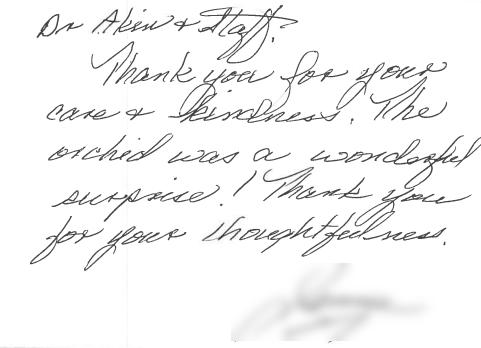 Dr Akin & Staff:
Thank you for your
care & kindness. The
orchid was a wonderful
surprise! Thank you
for your thoughtfulness.